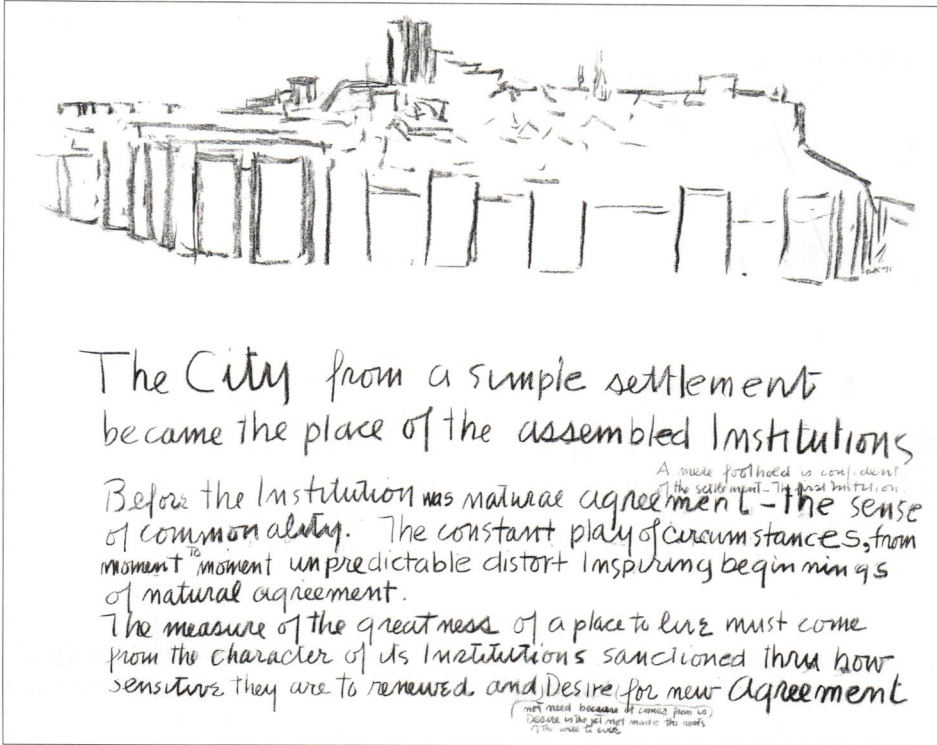 The City from a simple settlement
became the place of the assembled Institutions
A mere foothold is confident
of the settlement – The first Institution.
Before the Institution was natural agreement – the sense
of commonality. The constant play of circumstances, from
moment to moment unpredictable distort Inspiring beginnings
of natural agreement.
The measure of the greatness of a place to live must come
from the character of its Institutions sanctioned thru how
sensitive they are to renewed and Desire (for new Agreement
(not need because it comes from is)
Desire is the yet not made the roots
of the will to